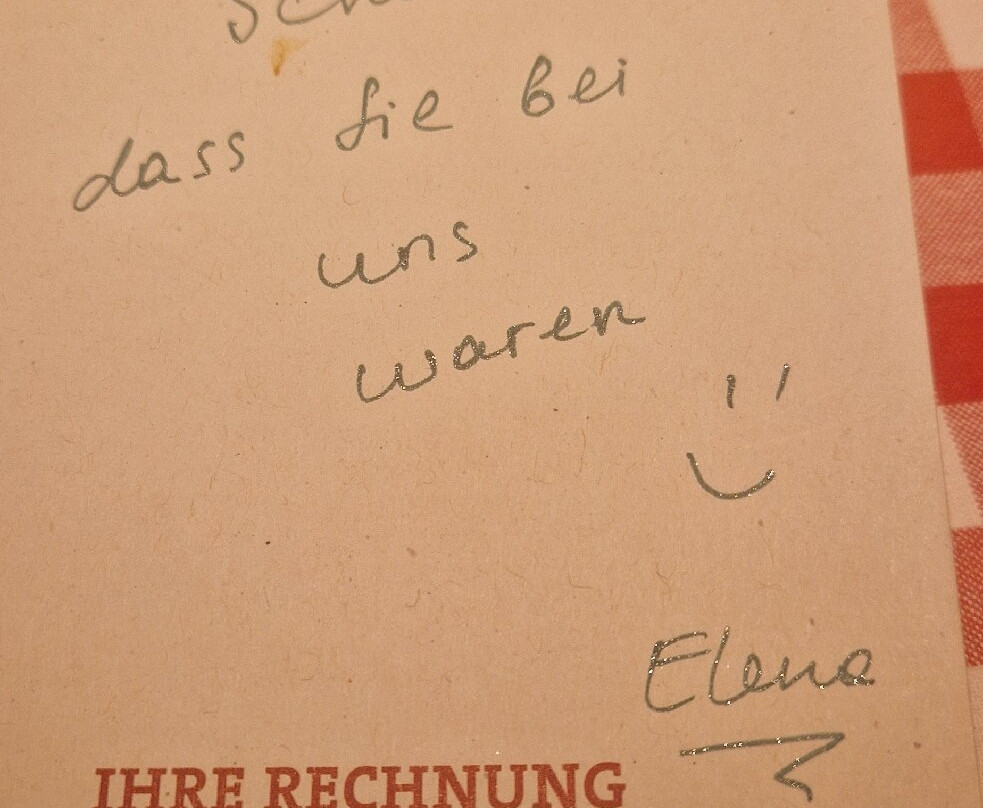 dass Sie bei
uns
waren
Elena
IHRE RECHNUNG